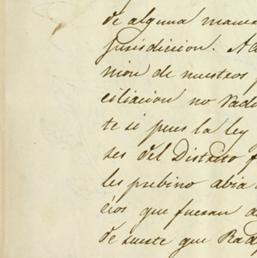 de alguna mane
jurisdicion. A
nion de nuestros
ciliacion no rad
te si pues la ley
ses del Distrito
les prebino abia
cios que fuesen
de suerte que Rad